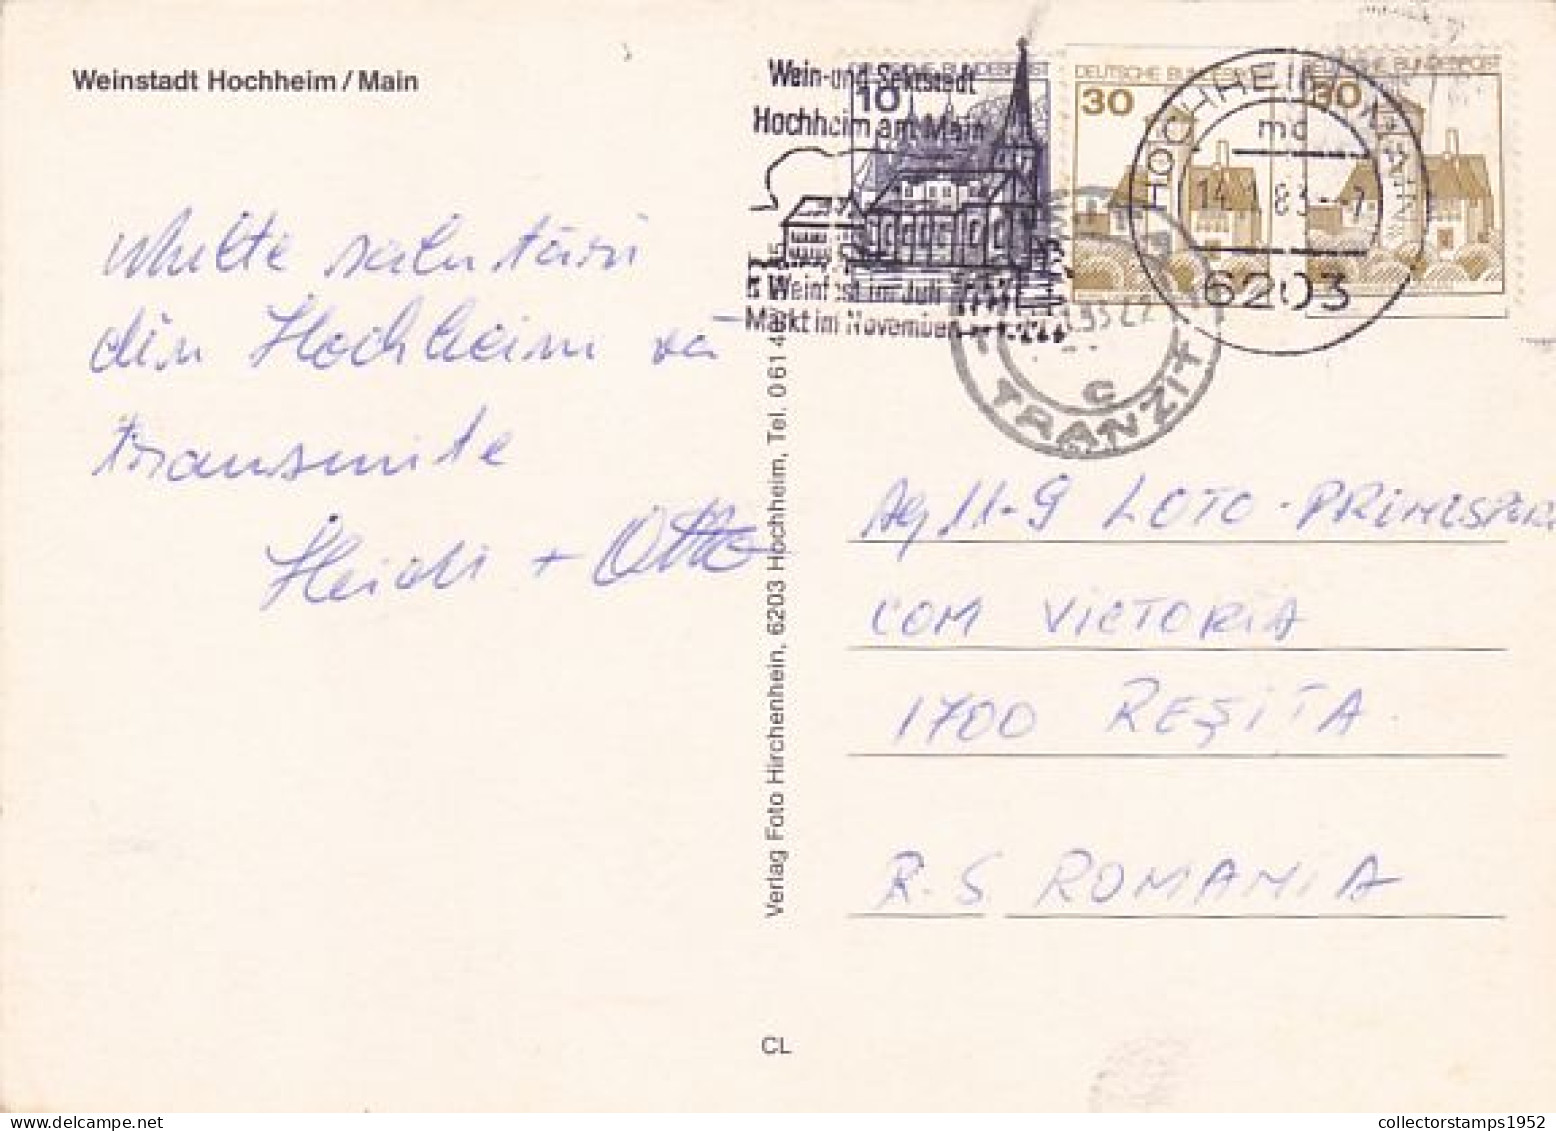 Weinstadt Hochheim / Main
Multe salutări
din Hochheim vă
transmite
Heidi + Otto
Verlag Foto Hirchenhein, 6203 Hochheim, Tel. 0 61 4
CL
Wein- und Sektstadt
Hochheim am Main
Weinfest im Juli
Markt im November
DEUTSCHE BUNDESPOST
10
DEUTSCHE BUNDESPOST
30
DEUTSCHE BUNDESPOST
30
HOCHHEIM, MAIN
mc
6203
TRANZIT
C
Ag 11-9 LOTO-PRONOSPORT
COM VICTORIA
1700 REŞIŢA
R.S. ROMANIA
collectorstamps1952